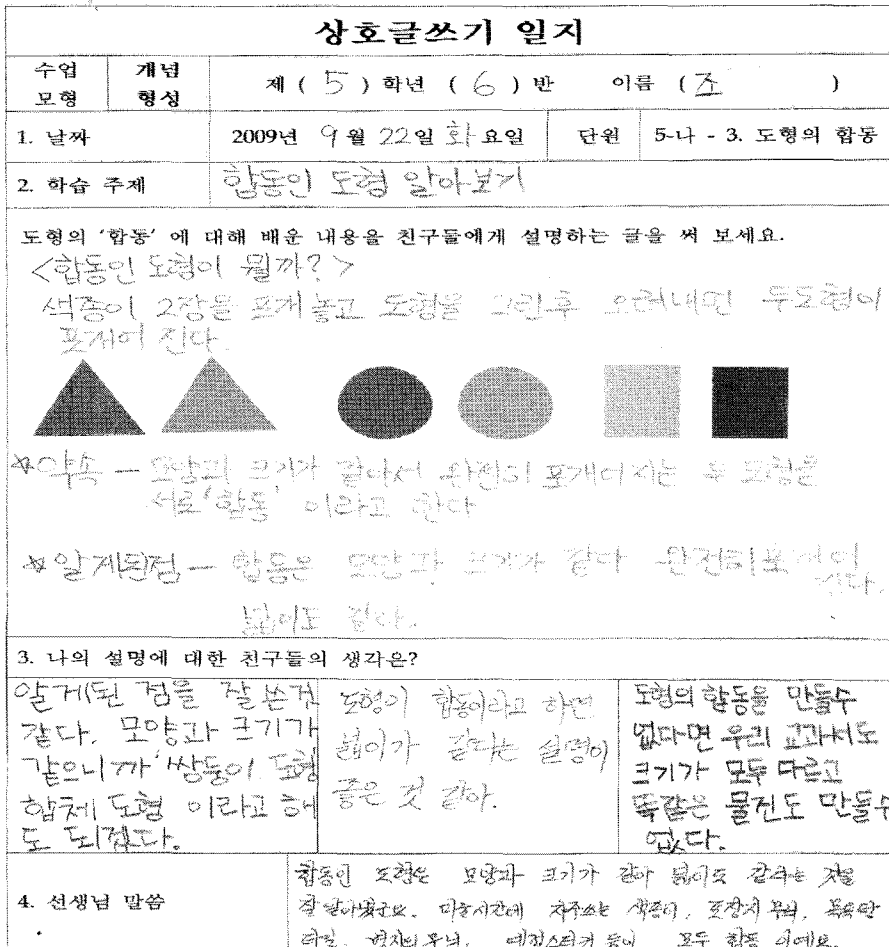 상호글쓰기 일지
수업 모형 개념 형성 제 ( 5 ) 학년 ( 6 ) 반 이름 ( 조 )
1. 날짜 2009년 9월 22일 화요일 단원 5-나 - 3. 도형의 합동
2. 학습 주제 합동인 도형 알아보기
도형의 '합동' 에 대해 배운 내용을 친구들에게 설명하는 글을 써 보세요.
<합동인 도형이 뭘까?>
색종이 2장을 포개놓고 도형을 그린후 오려내면 두도형이
포개어 진다.
*약속 - 모양과 크기가 같아서 완전히 포개어 지는 두 도형을
서로 '합동' 이라고 한다
*알게된점 - 합동은 모양과 크기가 같다 완전히포개어
진다.
넓이도 같다.
3. 나의 설명에 대한 친구들의 생각은?
알게된 점을 잘 쓴것
같다. 모양과 크기가
같으니까 '쌍둥이 도형
합체 도형 이라고 해
도 되겠다.
도형이 합동이라고 하면
넓이가 같다는 설명이
좋은 것 같아.
도형의 합동을 만들수
없다면 우리 교과서도
크기가 모두 다르고
똑같은 물건도 만들수
없다.
4. 선생님 말씀
합동인 도형은 모양과 크기가 같아 넓이도 같다는 것을
잘 알아냈군요. 미술시간에 자주쓰는 색종이, 포장지 무늬, 목욕탕
타일, 벽지의 무늬, 스티커 등이 모두 합동 이에요.